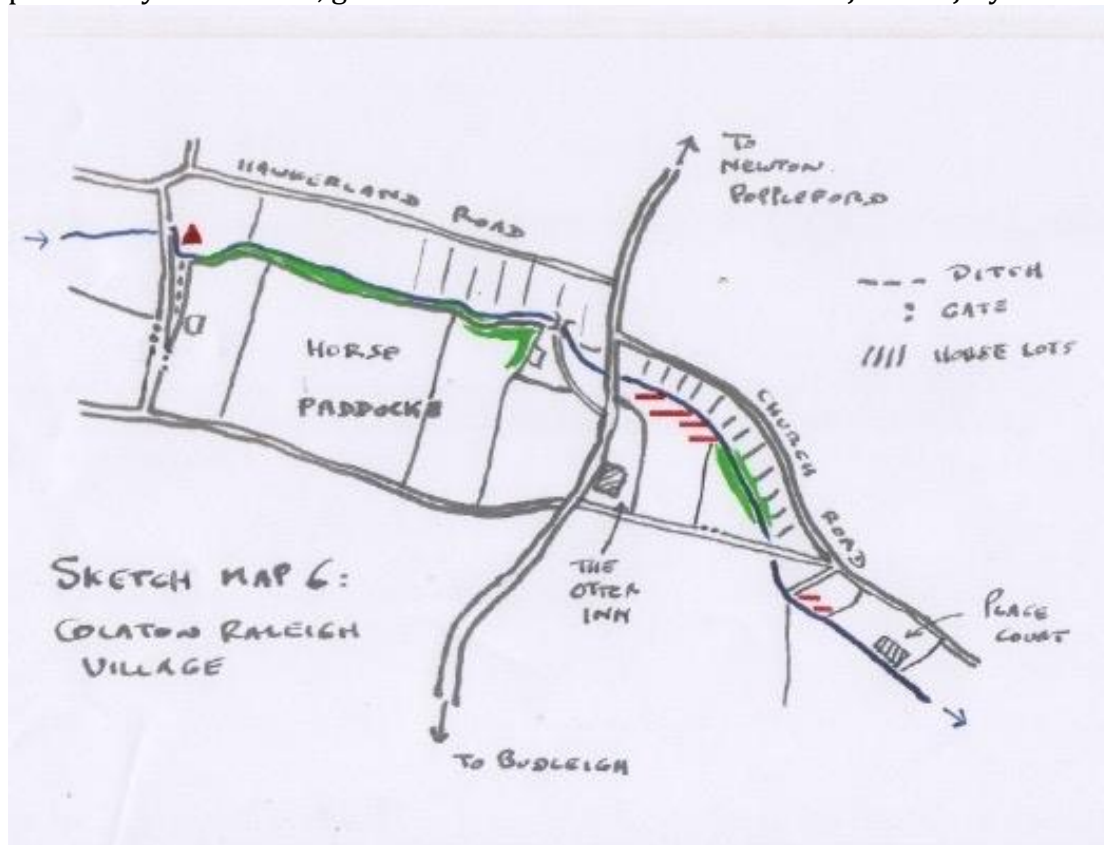 HAWKERLAND ROAD
TO
NEWTON
POPPLEFORD
--- DITCH
: GATE
//// HOUSE LOTS
HORSE
PADDOCKS
CHURCH
ROAD
THE
OTTER
INN
PLACE
COURT
SKETCH MAP 6:
COLATON RALEIGH
VILLAGE
TO BUDLEIGH